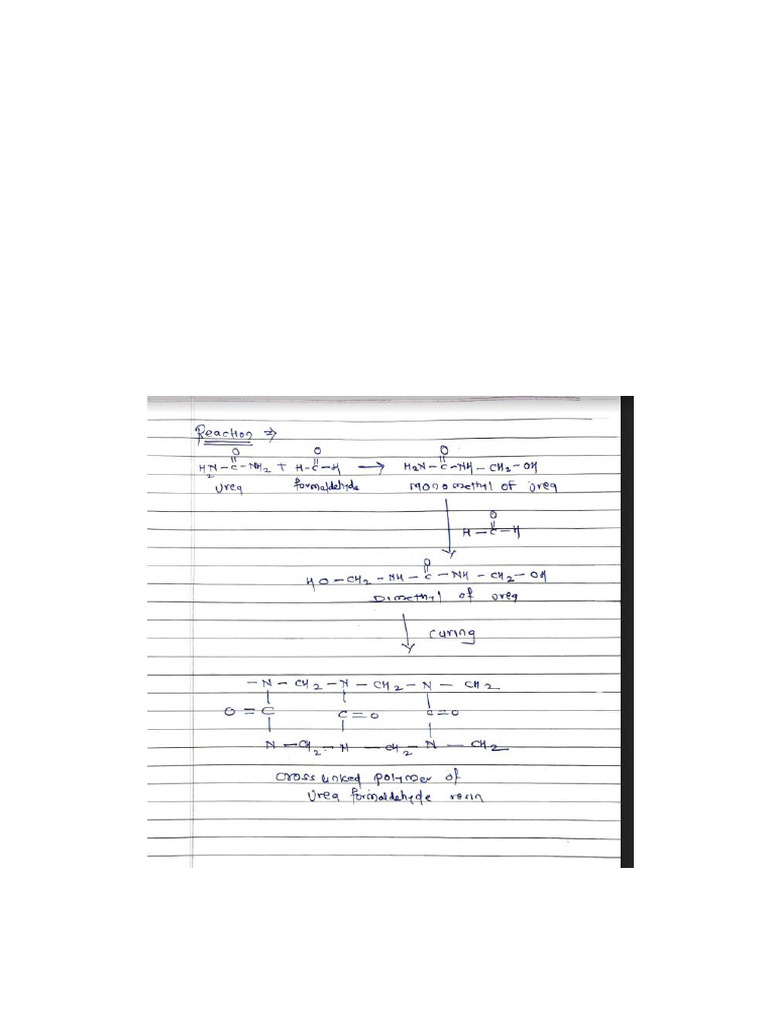 Reaction ⇒
O O O
H2N-C-NH2 + H-C-H → H2N-C-NH-CH2-OH
Urea formaldehyde monomethyl of urea
O
H-C-H
O
HO-CH2-NH-C-NH-CH2-OH
Dimethyl of urea
curing
-N-CH2-N-CH2-N-CH2
O=C C=O C=O
N-CH2-N-CH2-N-CH2
cross linked polymer of
Urea formaldehyde resin